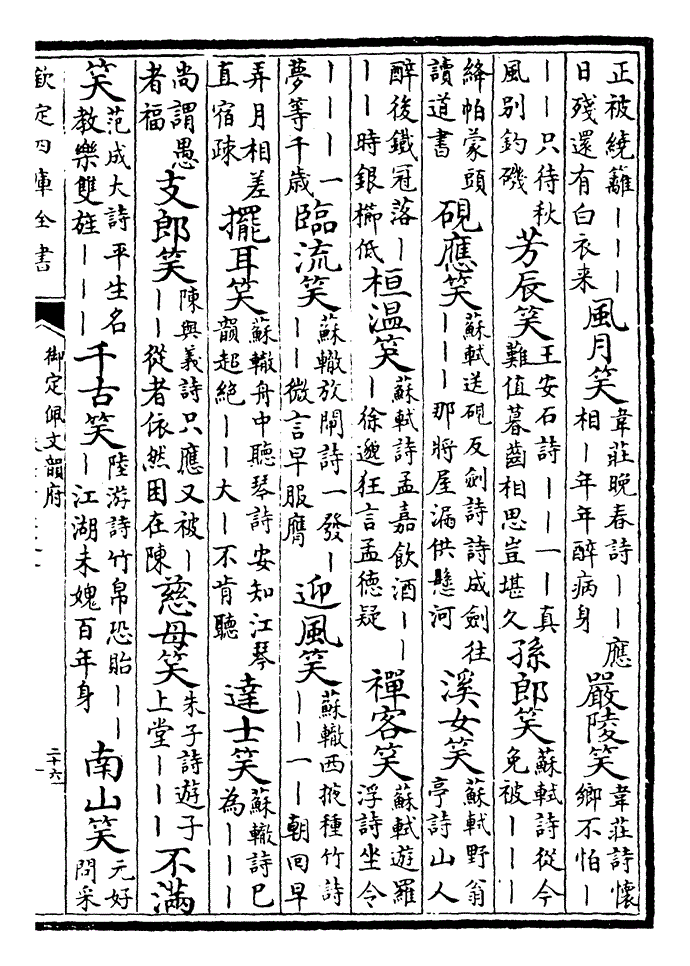 正被繞籬丨丨丨日殘還有白衣来風月笑韋莊晚春詩丨丨應相丨年年醉病身嚴陵笑韋莊詩懷鄉不怕丨
丨丨只待秋風别釣磯芳辰笑王安石詩丨丨一丨真難值暮齒相思豈堪久孫郎笑蘇軾詩從今免被丨丨丨
絳帕蒙頭讀道書硯應笑蘇軾送硯反劍詩詩成劍往丨丨丨那將屋漏供懸河溪女笑蘇軾野翁亭詩山人
醉後鐵冠落丨丨丨時銀櫛低桓温笑蘇軾詩孟嘉飲酒丨丨丨徐邈狂言孟德疑禪客笑蘇軾遊羅浮詩坐令
丨丨丨一夢等千歲臨流笑蘇轍放閘詩一發丨丨丨微言早服膺迎風笑蘇轍西掖種竹詩丨丨一丨朝回早
弄月相差直宿疎擺耳笑蘇轍舟中聽琴詩安知江琴韻超絶丨丨大丨不肯聽達士笑蘇轍詩已為丨丨丨
尚謂愚者福支郎笑陳與義詩只應又被丨丨丨從者依然困在陳慈母笑朱子詩遊子上堂丨丨丨不滿
笑范成大詩平生名教樂雙旌丨丨丨千古笑陸游詩竹帛恐貽丨丨丨江湖未媿百年身南山笑元好問采
欽定四庫全書
御定佩文韻府
二十六